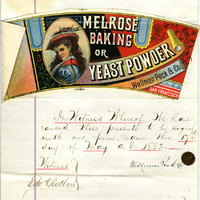 MELROSE
BAKING
OR
YEAST POWDER
Wellman Peck & Co.
SAN FRANCISCO
In Witness Whereof We have
caused these presents to be
with our firm name this 17th
day of May A.D. 1882.
Witness
Wellman Peck & Co